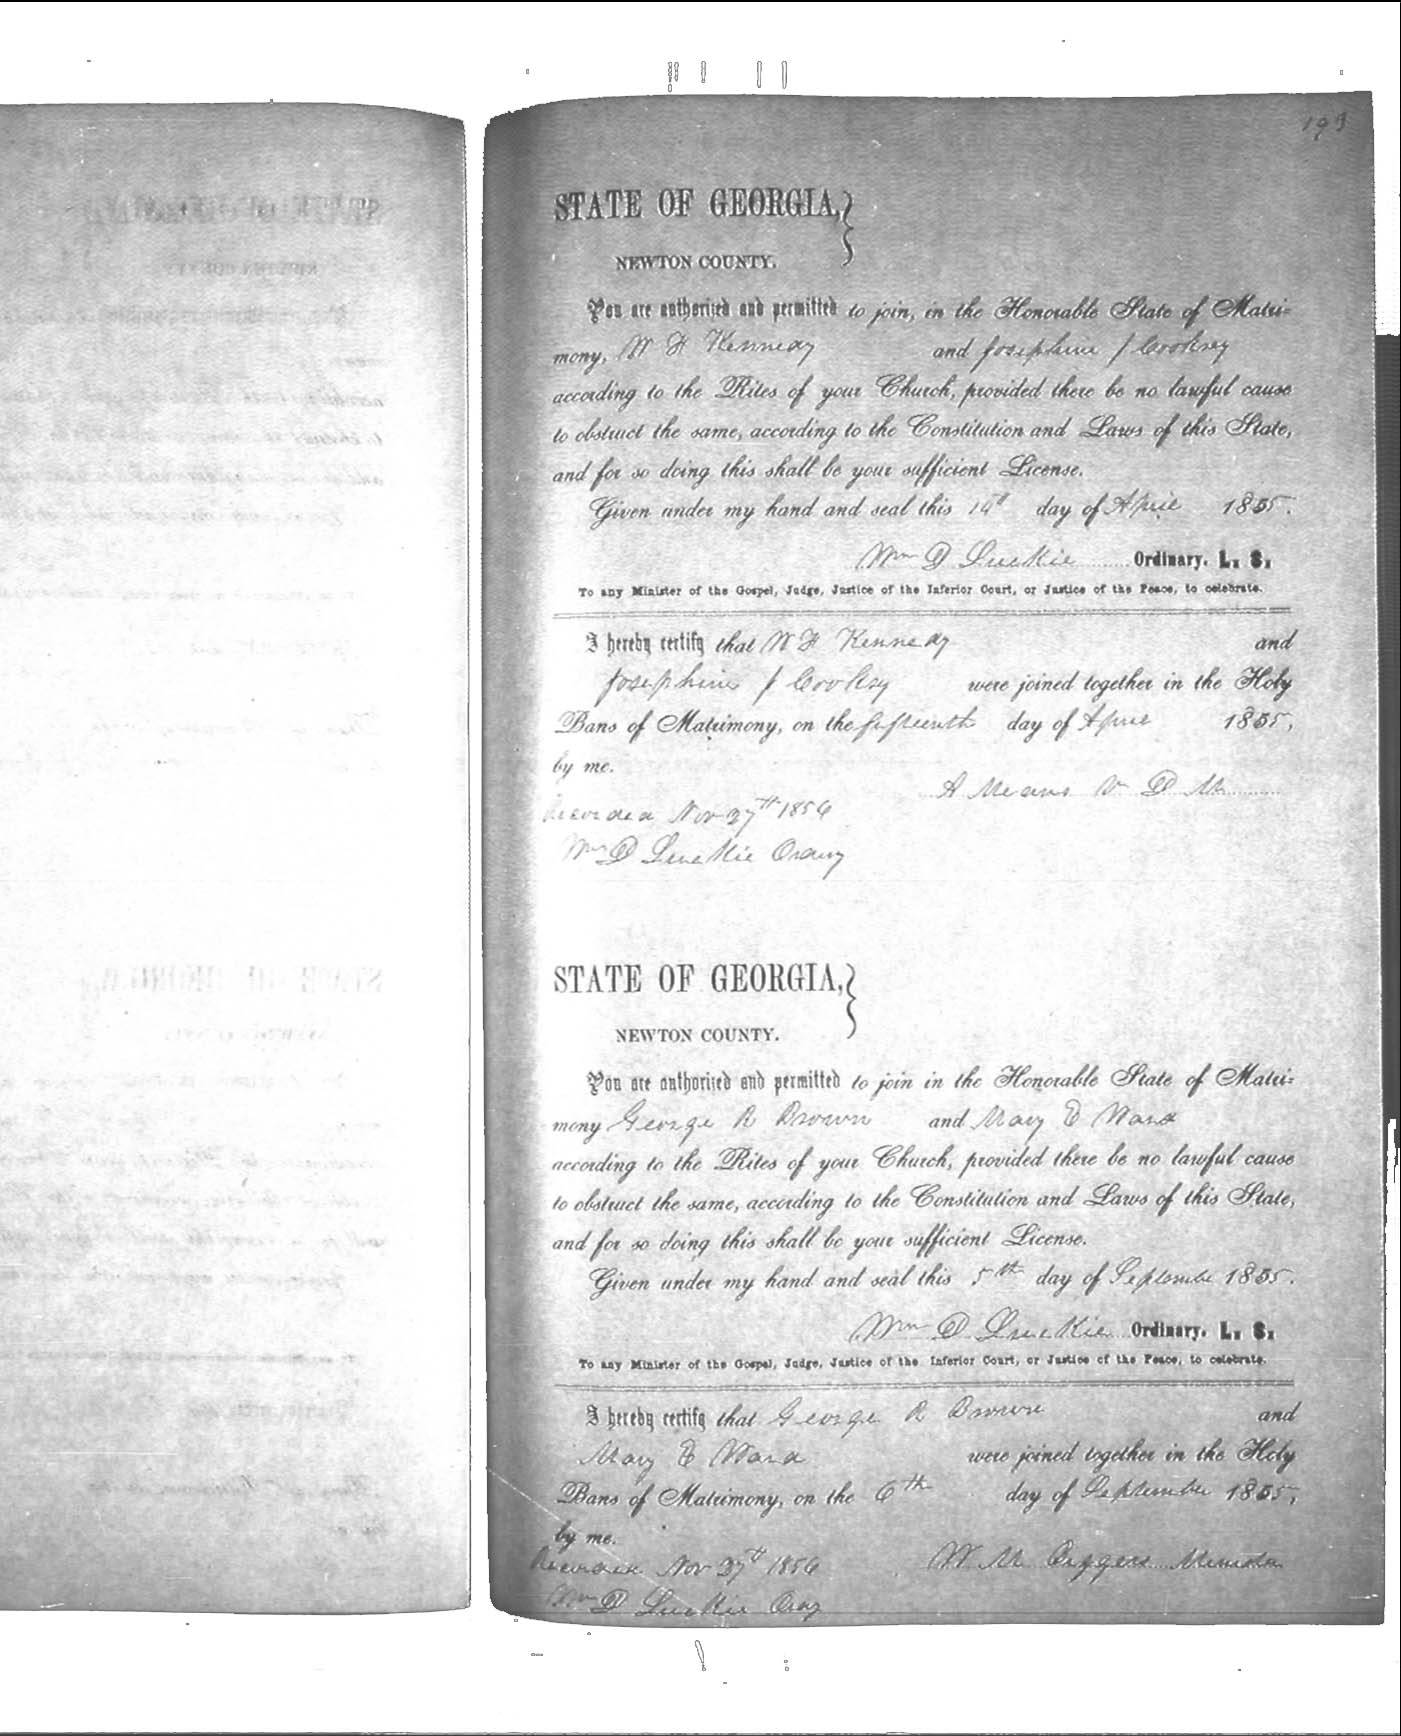 193
STATE OF GEORGIA,
NEWTON COUNTY.
You are authorized and permitted to join, in the Honorable State of Matri=
mony, W H Kennedy and Josephine J Cooksey
according to the Rites of your Church, provided there be no lawful cause
to obstruct the same, according to the Constitution and Laws of this State,
and for so doing this shall be your sufficient License.
Given under my hand and seal this 14th day of April 1855.
Wm D Luckie Ordinary. L. S.
To any Minister of the Gospel, Judge, Justice of the Inferior Court, or Justice of the Peace, to celebrate.
I hereby certify that W H Kennedy and
Josephine J Cooksey were joined together in the Holy
Bans of Matrimony, on the fifteenth day of April 1855,
by me.
A Means V D M
Recorded Nov 27th 1856
Wm D Luckie Ordny
STATE OF GEORGIA,
NEWTON COUNTY.
You are authorized and permitted to join in the Honorable State of Matri=
mony George R Brown and Mary E Ward
according to the Rites of your Church, provided there be no lawful cause
to obstruct the same, according to the Constitution and Laws of this State,
and for so doing this shall be your sufficient License.
Given under my hand and seal this 5th day of September 1855.
Wm D Luckie Ordinary. L. S.
To any Minister of the Gospel, Judge, Justice of the Inferior Court, or Justice of the Peace, to celebrate.
I hereby certify that George R Brown and
Mary E Ward were joined together in the Holy
Bans of Matrimony, on the 6th day of September 1855,
by me.
W M Minister
Recorded Nov 27th 1856
Wm D Luckie Ordy